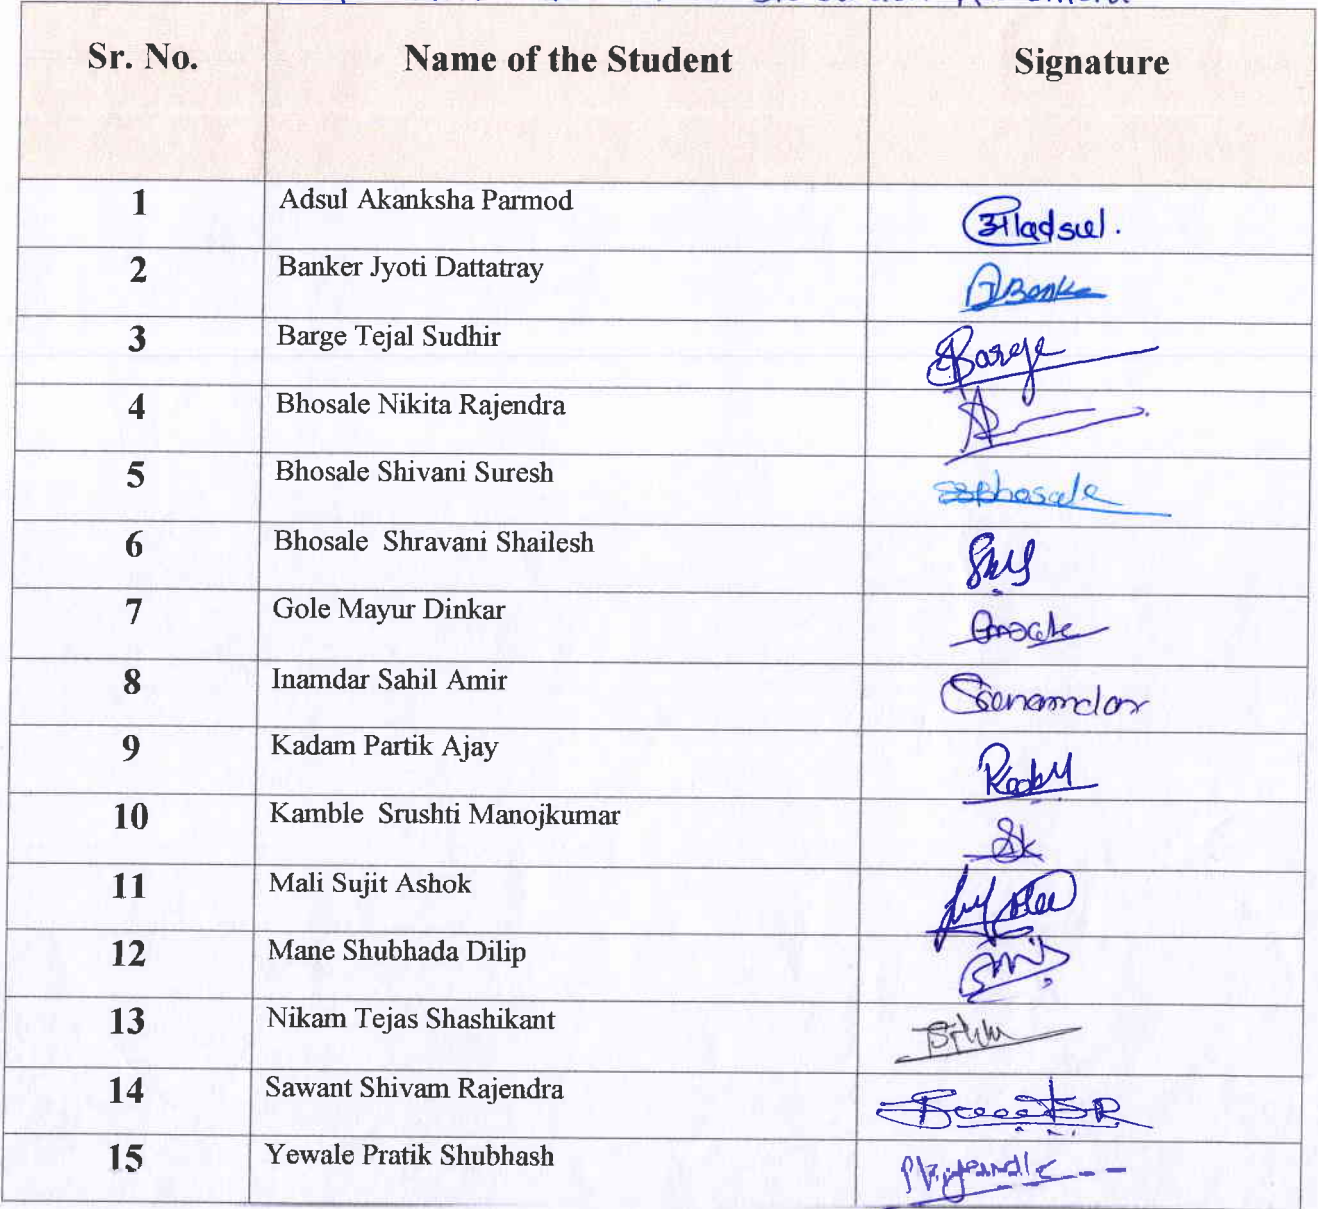 Sr. No. Name of the Student Signature
1 Adsul Akanksha Parmod अाadsul.
2 Banker Jyoti Dattatray
3 Barge Tejal Sudhir Barge
4 Bhosale Nikita Rajendra
5 Bhosale Shivani Suresh ssbhosale
6 Bhosale Shravani Shailesh
7 Gole Mayur Dinkar
8 Inamdar Sahil Amir
9 Kadam Partik Ajay
10 Kamble Srushti Manojkumar Sk
11 Mali Sujit Ashok
12 Mane Shubhada Dilip
13 Nikam Tejas Shashikant
14 Sawant Shivam Rajendra
15 Yewale Pratik Shubhash